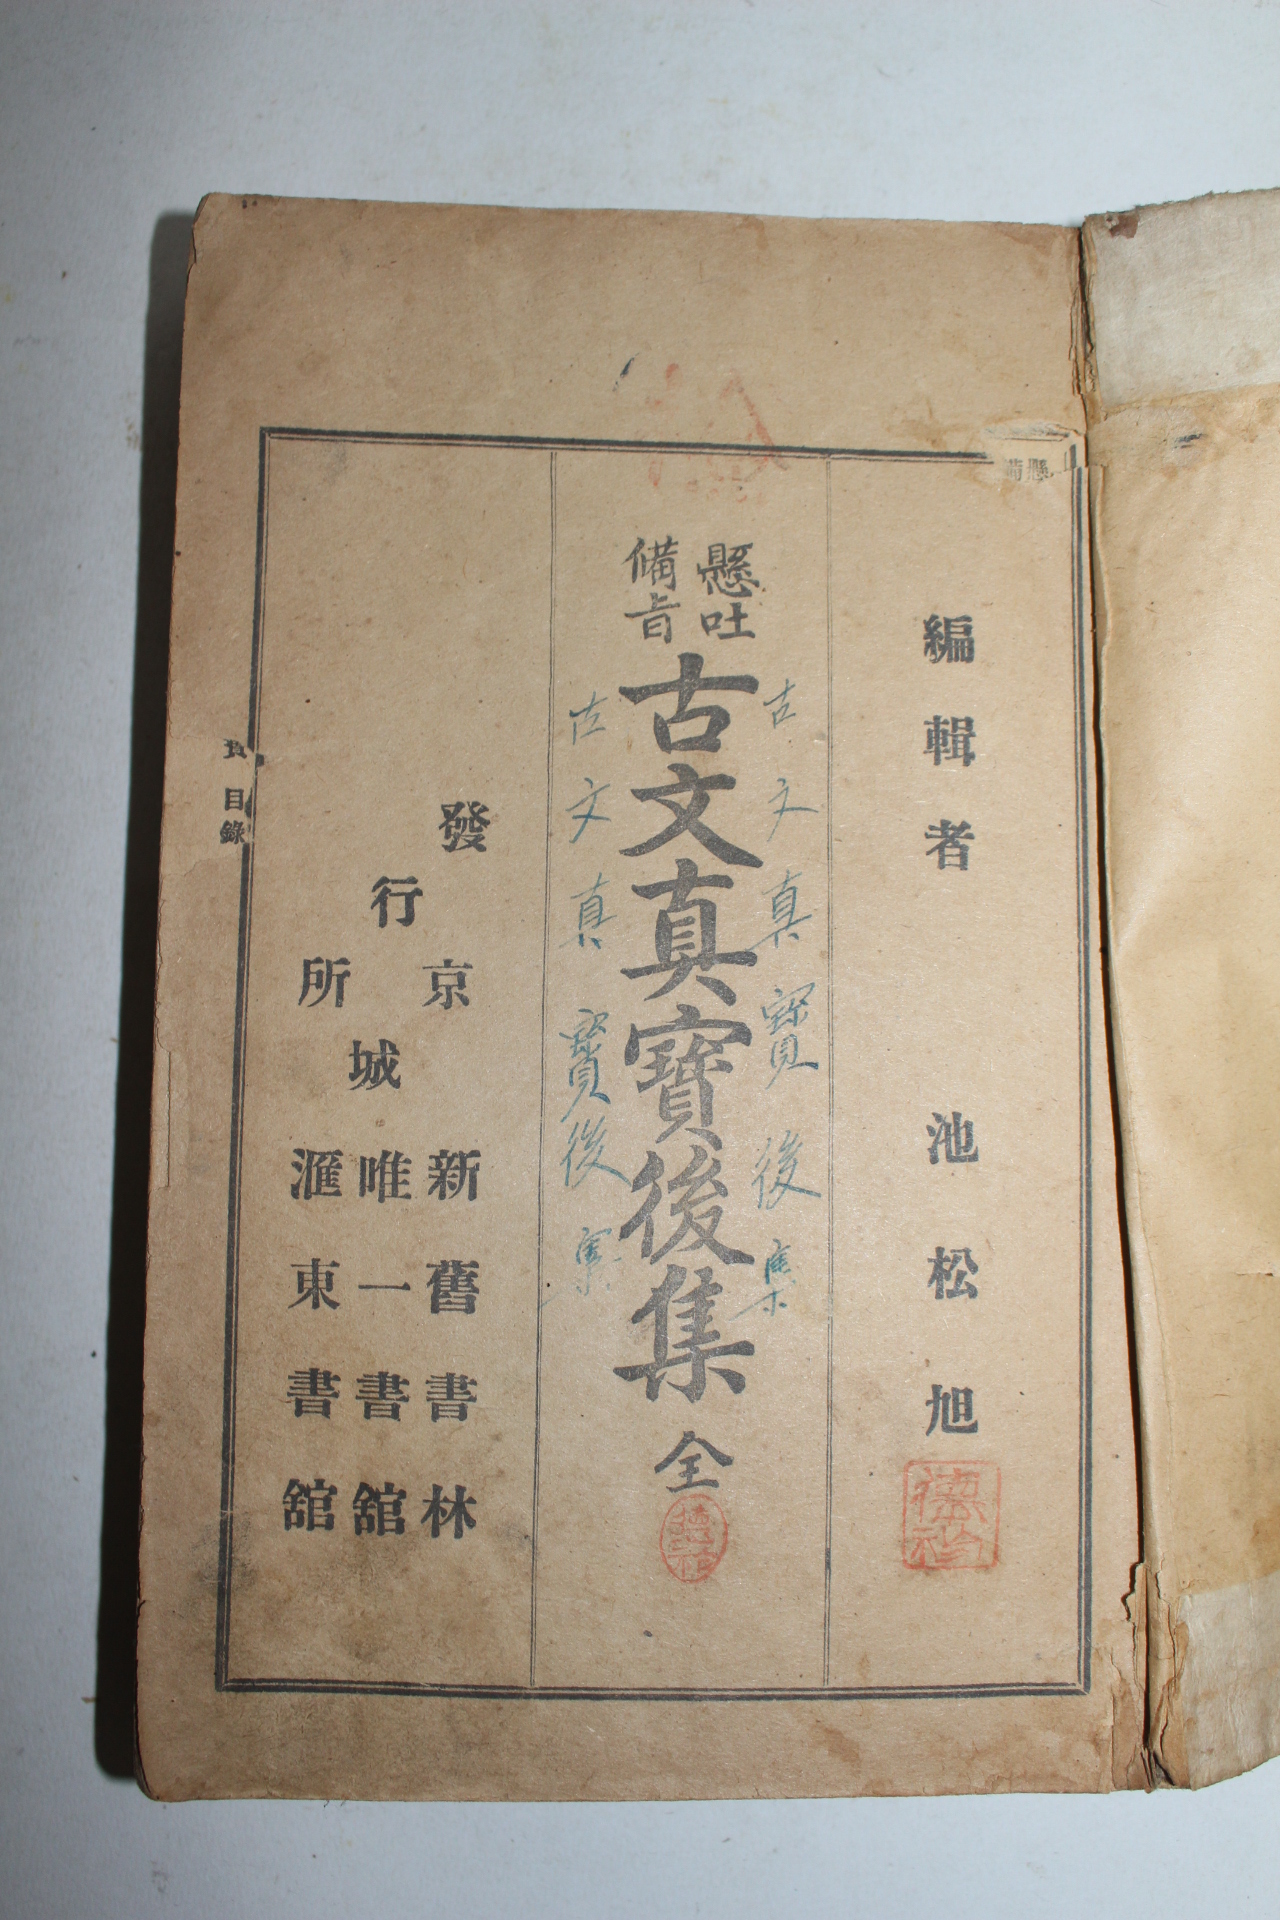 編輯者 池松旭
懸吐
備旨
古文真寶後集 全
古文真寶後集
古文真寶後集
發行所
京城
新舊書林
唯一書舘
滙東書舘
目錄
懸備